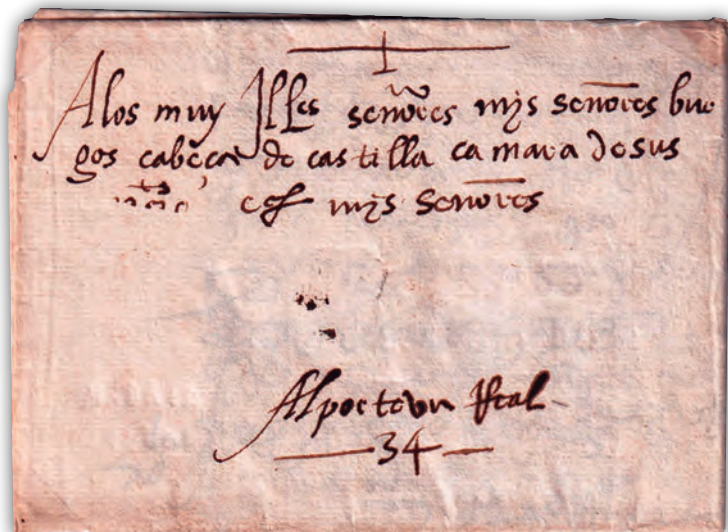 Alos muy Illes señores mys señores bur
gos cabeça de castilla camara de sus
mys señores
Al porte vn Real
34